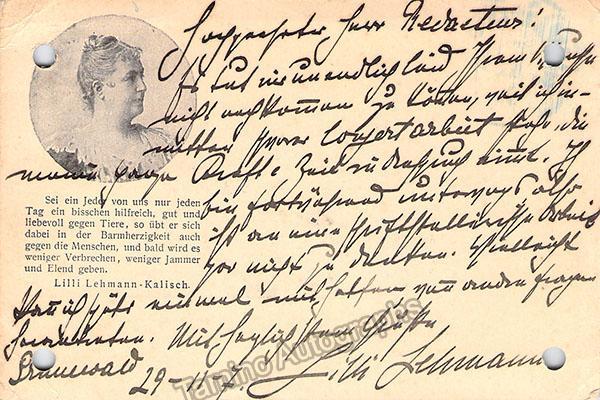 Hochgeehrter Herr Redacteur!
Es tut mir unendlich leid Ihrem Wunsche
nicht nachkommen zu können, weil ich in-
mitten schwerer Concertarbeit stehe, die
meine ganze Kraft & Zeit in Anspruch nimmt. Ich
bin fortwährend unterwegs also
ist an eine schriftstellerische Arbeit
gar nicht zu denken. Vielleicht
kann ich später einmal
Mit herzlichsten Grüßen
Grunewald
29-11-7. Lilli Lehmann
Sei ein Jeder von uns nur jeden
Tag ein bisschen hilfreich, gut und
liebevoll gegen Tiere, so übt er sich
dabei in der Barmherzigkeit auch
gegen die Menschen, und bald wird es
weniger Verbrechen, weniger Jammer
und Elend geben.
Lilli Lehmann-Kalisch.
Tamino Autographs